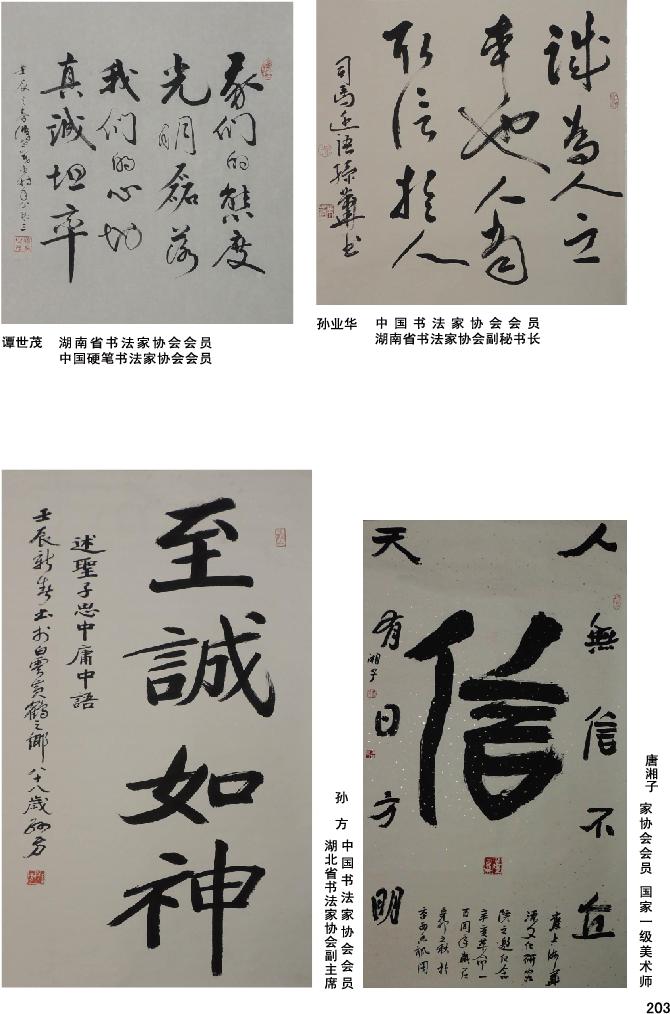 我们的態度
光明磊落
我们的心地
真誠坦率
谭世茂 湖南省书法家协会会员
中国硬笔书法家协会会员
誠為人立
本也人者
取信於人
司馬迁语孫業華书
孙业华 中国书法家协会会员
湖南省书法家协会副秘书长
至誠如神
述聖子思中庸中語
壬辰新春书於白雲黄鶴之鄉八十八歲孫方
孙方 中国书法家协会会员
湖北省书法家协会副主席
人無信不立
信
天有日方明
湘子
唐湘子 家协会会员 国家一级美术师
203